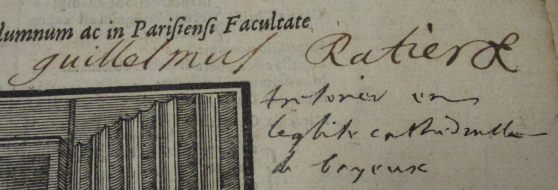 lumnum ac in Parisiensi Facultate
guillelmus Ratier
tresorier en
leglise cathedralle
de bayeux